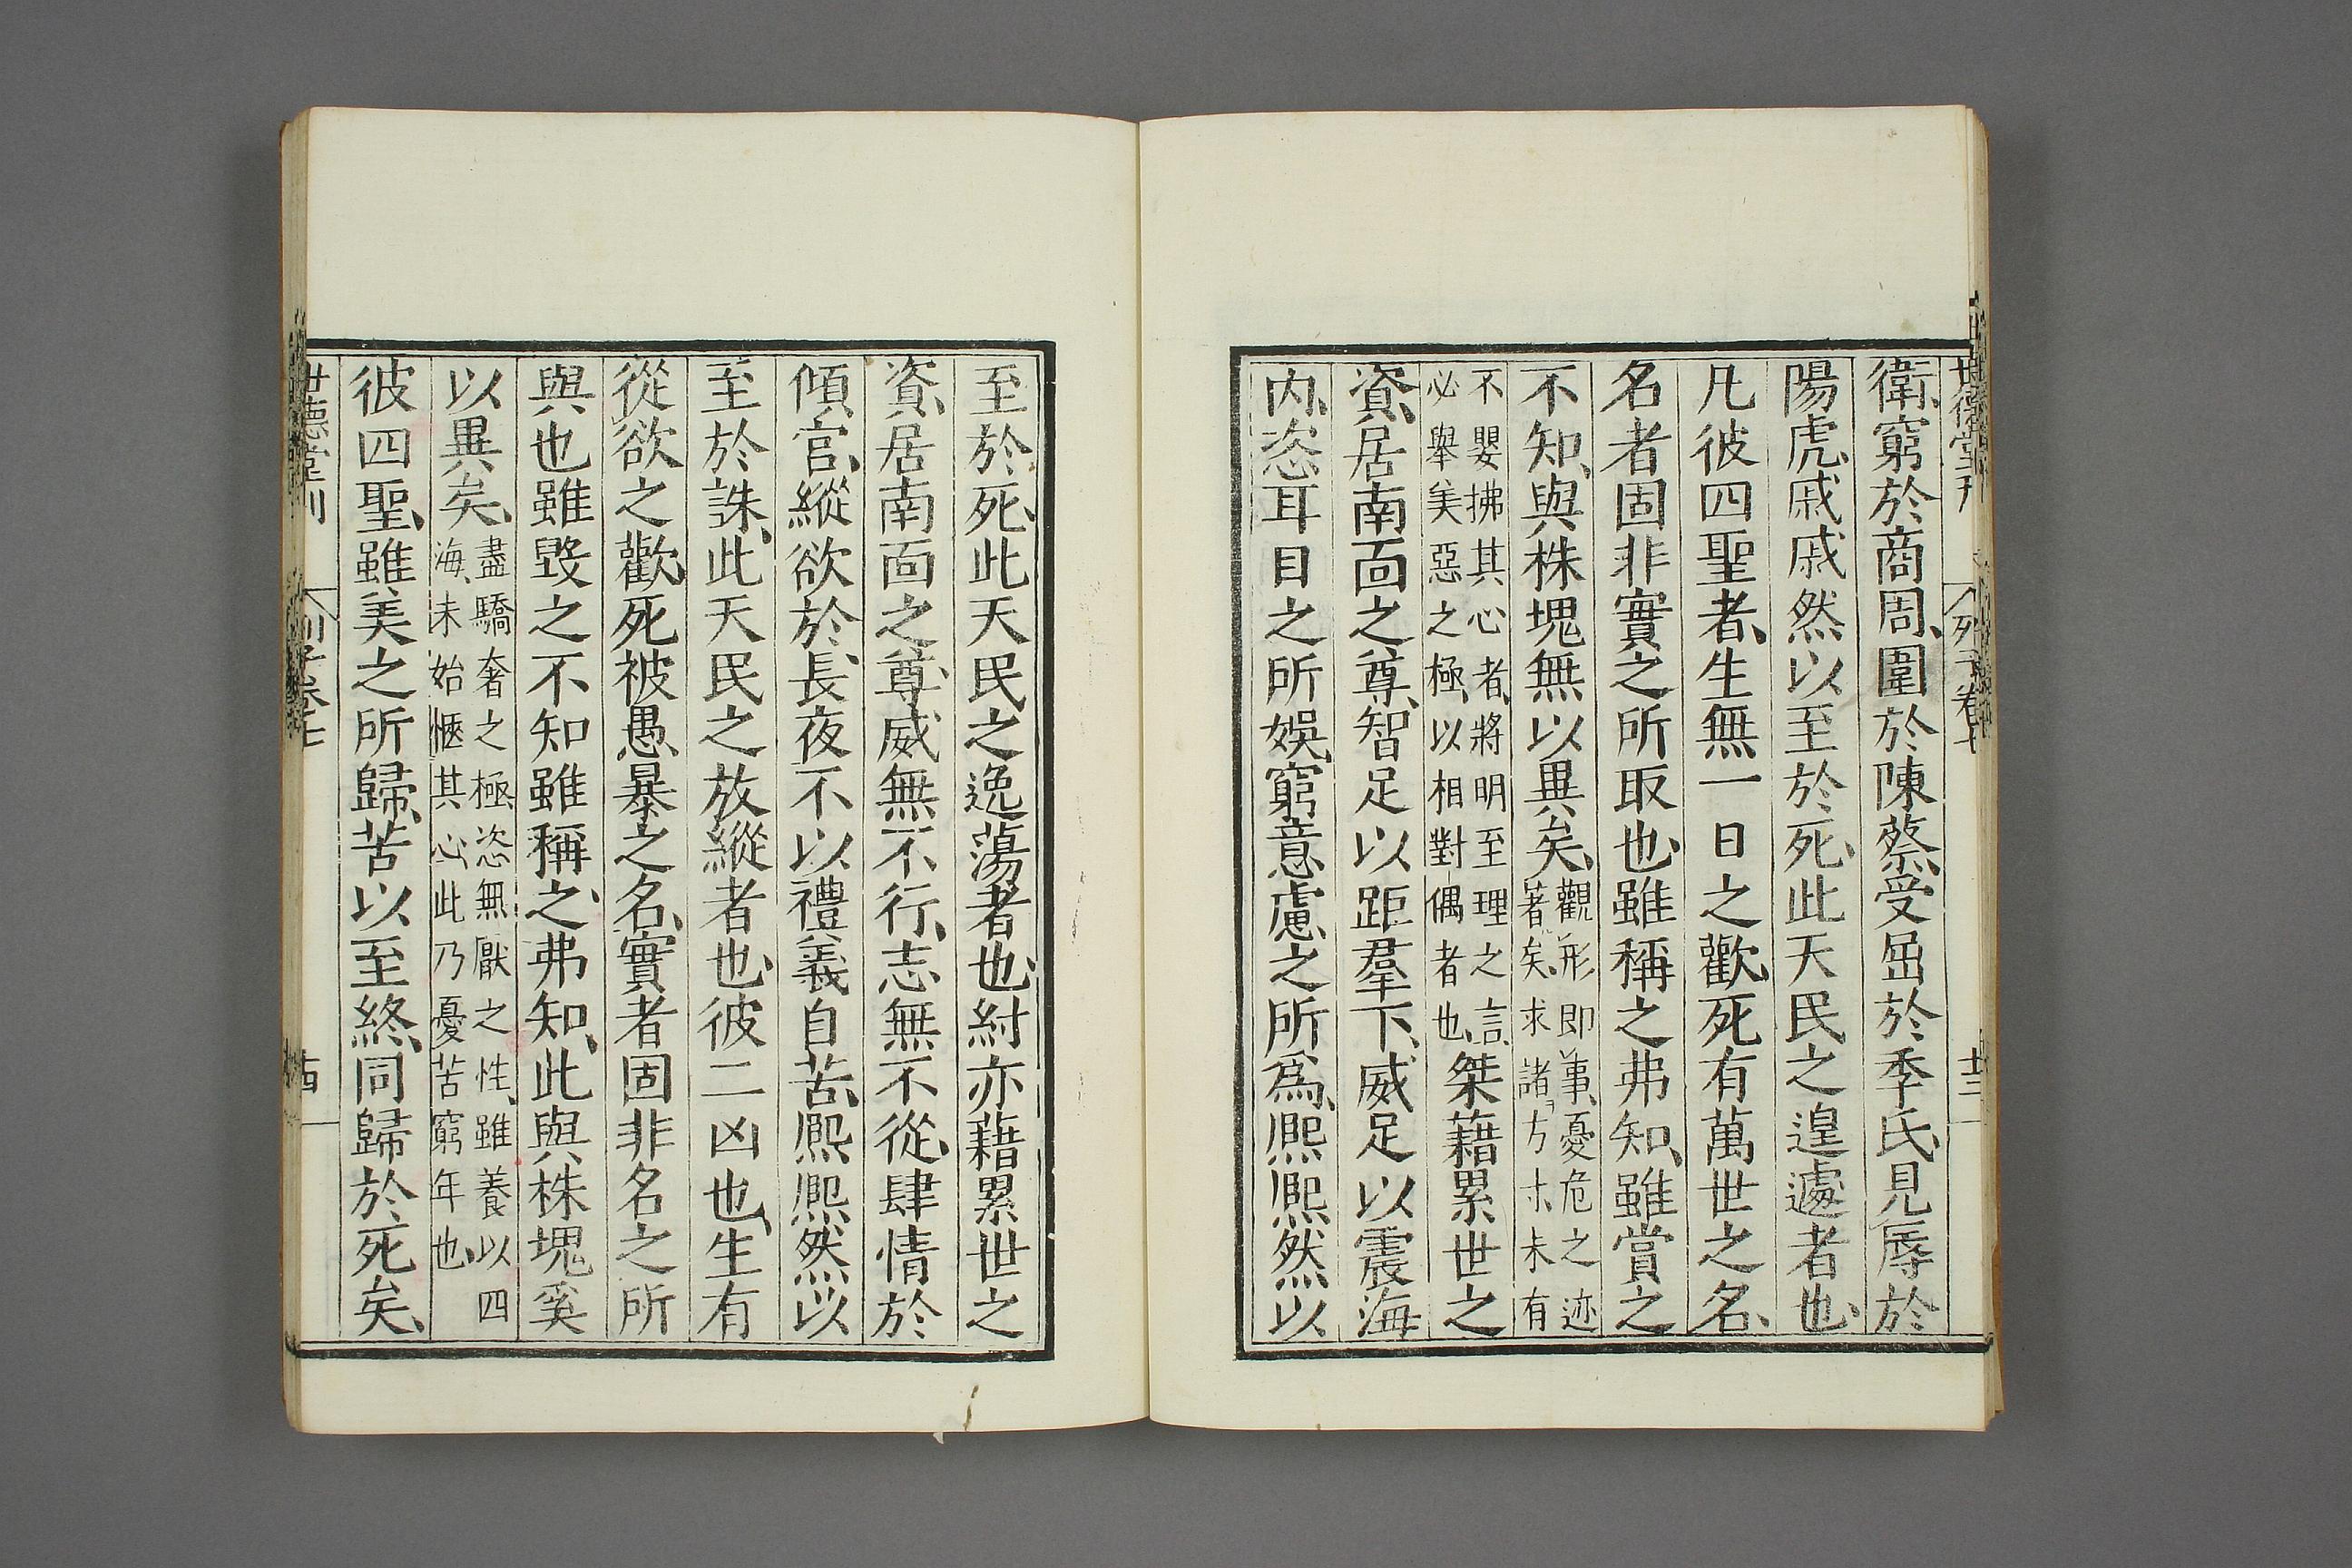 衛、窮於商周、圍於陳蔡、受屈於季氏、見辱於
陽虎、戚戚然以至於死、此天民之遑遽者也、
凡彼四聖者、生無一日之歡、死有萬世之名、
名者固非實之所取也、雖稱之弗知、雖賞之
不知、與株塊無以異矣、
觀形即事、憂危之迹
著矣、求諸方寸、未有
不嬰拂其心者、將明至理之言、
必舉美惡之極、以相對偶者也、
桀藉累世之
資、居南面之尊、智足以距羣下、威足以震海
内、恣耳目之所娛、窮意慮之所爲、熈熈然以
至於死、此天民之逸蕩者也、紂亦藉累世之
資、居南面之尊、威無不行、志無不從、肆情於
傾宫、縱欲於長夜、不以禮義自苦、熈熈然以
至於誅、此天民之放縱者也、彼二凶也、生有
從欲之歡、死被愚暴之名、實者固非名之所
與也、雖毀之不知、雖稱之弗知、此與株塊奚
以異矣、
盡驕奢之極、恣無厭之性、雖養以四
海、未始愜其心、此乃憂苦窮年也、
彼四聖、雖美之所歸、苦以至終、同歸於死矣、
世德堂刊
列子卷七